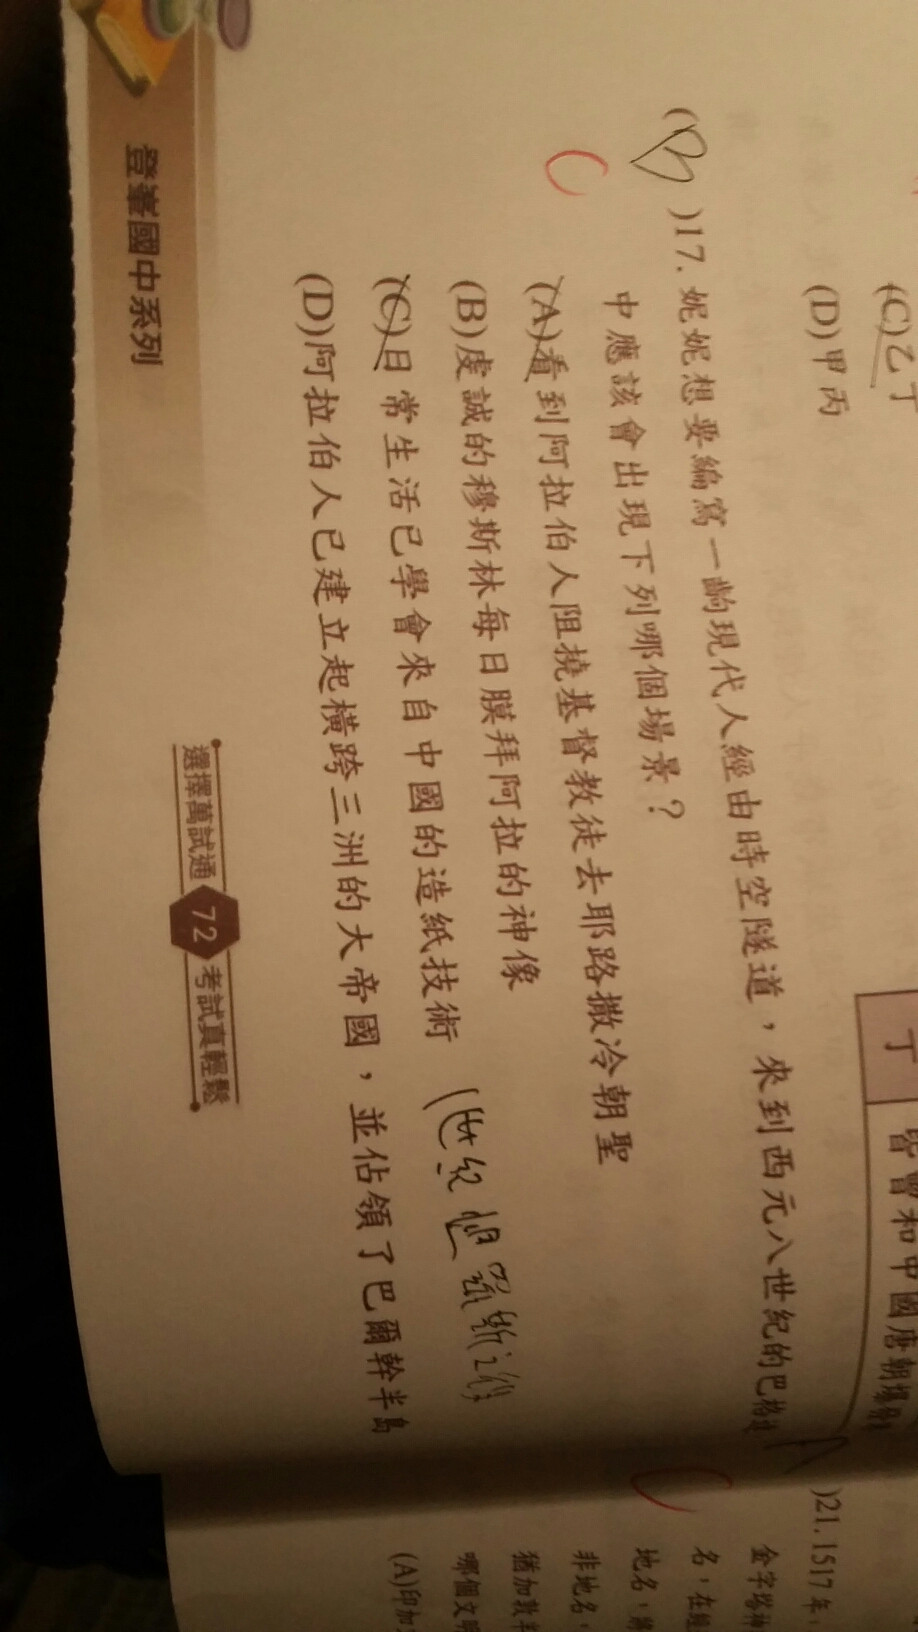 (C)乙丁
(D)甲丙
(B)17. 妮妮想要編寫一齣現代人經由時空隧道，來到西元八世紀的巴格達
中應該會出現下列哪個場景？
C
(A)看到阿拉伯人阻撓基督教徒去耶路撒冷朝聖
(B)虔誠的穆斯林每日膜拜阿拉的神像
(C)日常生活已學會來自中國的造紙技術
(D)阿拉伯人已建立起橫跨三洲的大帝國，並佔領了巴爾幹半島
登峯國中系列
選擇萬試通 72 考試真輕鬆
丁 皆曾和中國唐朝爆發
A
C
)21. 1517年，
金字塔神
名，在經
地名，將
非地名，
猶加敦半
哪個文明
(A)印加